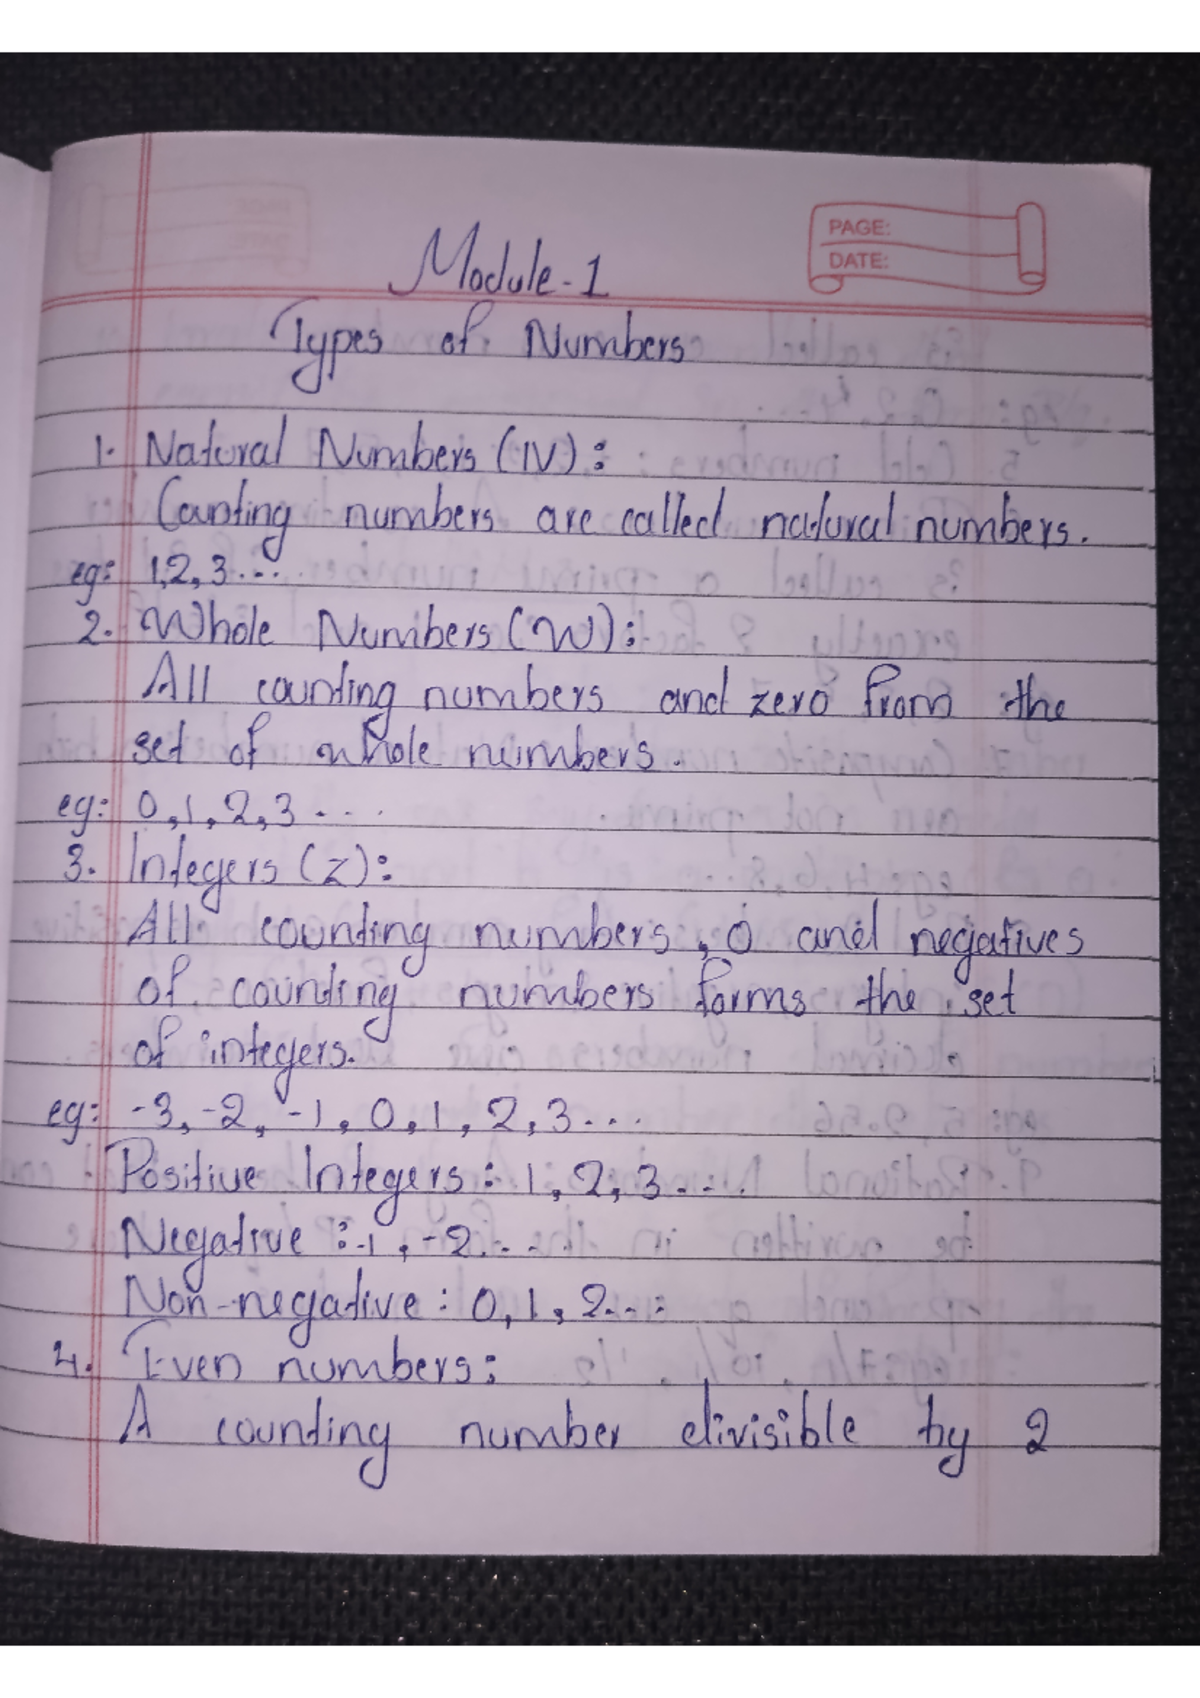 PAGE:
DATE:
Module-1
Types of Numbers
1. Natural Numbers (IN):
Counting numbers are called natural numbers.
eg: 1,2,3...
2. Whole Numbers (W):
All counting numbers and zero from the
set of whole numbers.
eg: 0,1,2,3...
3. Integers (Z):
All counting numbers, 0 and negatives
of counting numbers forms the set
of integers.
eg: -3,-2,-1,0,1,2,3...
Positive Integers: 1,2,3....
Negative :-1,-2....
Non-negative: 0,1,2...
4. Even numbers:
A counting number divisible by 2